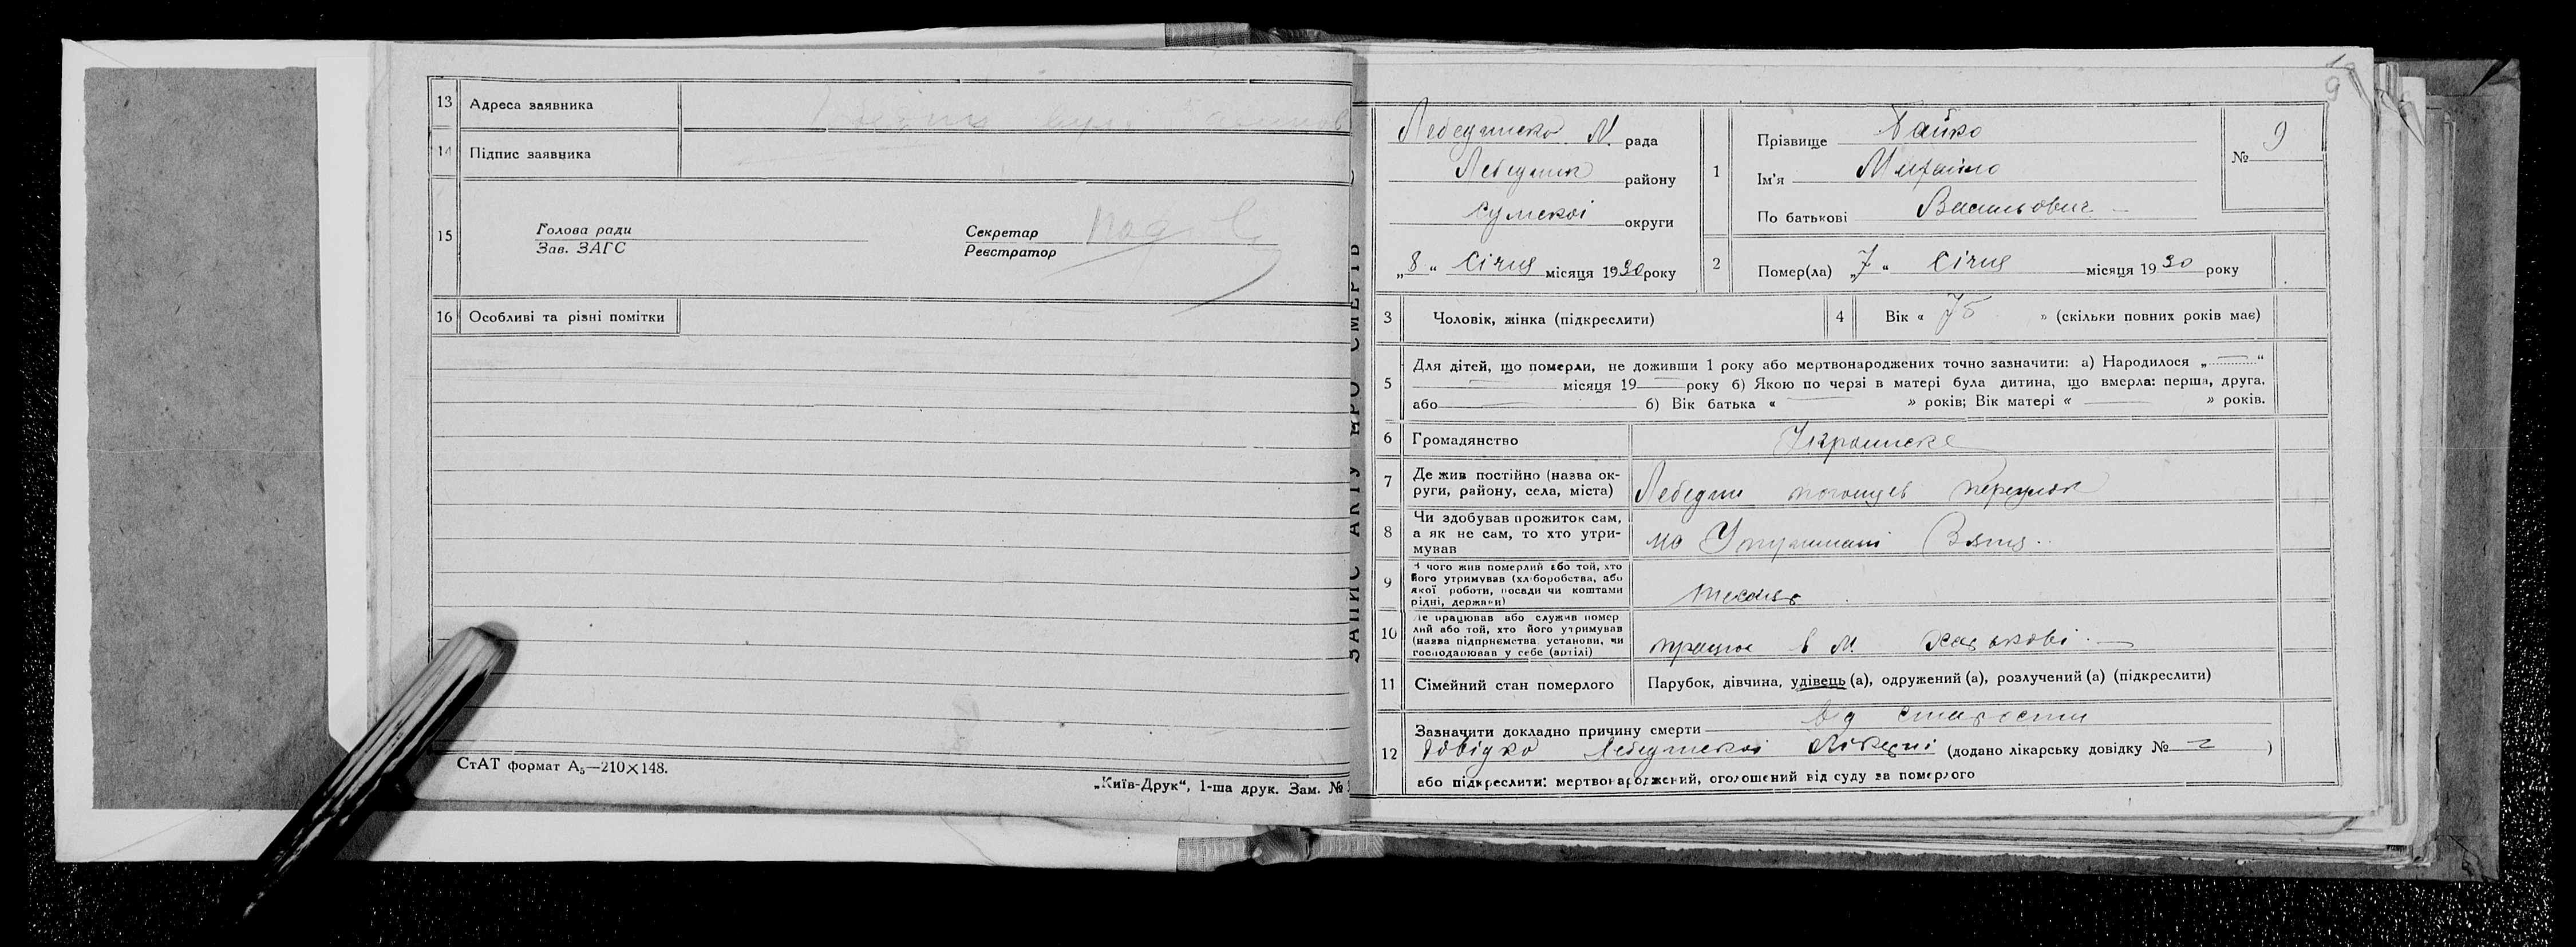 13 Адреса заявника
14 Підпис заявника
15 Голова ради
Зав. ЗАГС
Секретар
Реєстратор
16 Особливі та різні помітки
СтАТ формат А₅—210×148.
„Київ-Друк“, 1-ша друк. Зам. №
ЗАПИС АКТУ ПРО СМЕРТЬ
9
Лебединска М. рада
Лебедин району
Сумскоі округи
„8“ Січня місяця 1930 року
1 Прізвище Байко
Ім'я Михайло
По батькові Васильович
№ 9
2 Помер(ла) „7“ Січня місяця 1930 року
3 Чоловік, жінка (підкреслити)
4 Вік « 75 » (скільки повних років має)
5 Для дітей, що померли, не доживши 1 року або мертвонароджених точно зазначити: а) Народилося „ — “
— місяця 19 — року б) Якою по черзі в матері була дитина, що вмерла: перша, друга,
або — б) Вік батька « — » років; Вік матері « — » років.
6 Громадянство Украинске
7 Де жив постійно (назва округи, району, села, міста) Лебедин переулок
8 Чи здобував прожиток сам, а як не сам, то хто утримував на Утриманні Зятя
9 З чого жив померлий або той, хто його утримував (хліборобства, або якої роботи, посади чи коштами рідні, держави)
10 Де працював або служив померлий або той, хто його утримував (назва підприємства, установи, чи господарював у себе (артілі) працює в М Харькові
11 Сімейний стан померлого Парубок, дівчина, удівець (а), одружений (а), розлучений (а) (підкреслити)
12 Зазначити докладно причину смерти від старости
Довідка Лебединскоі лікарні (додано лікарську довідку № 2)
або підкреслити: мертвонароджений, оголошений від суду за померлого